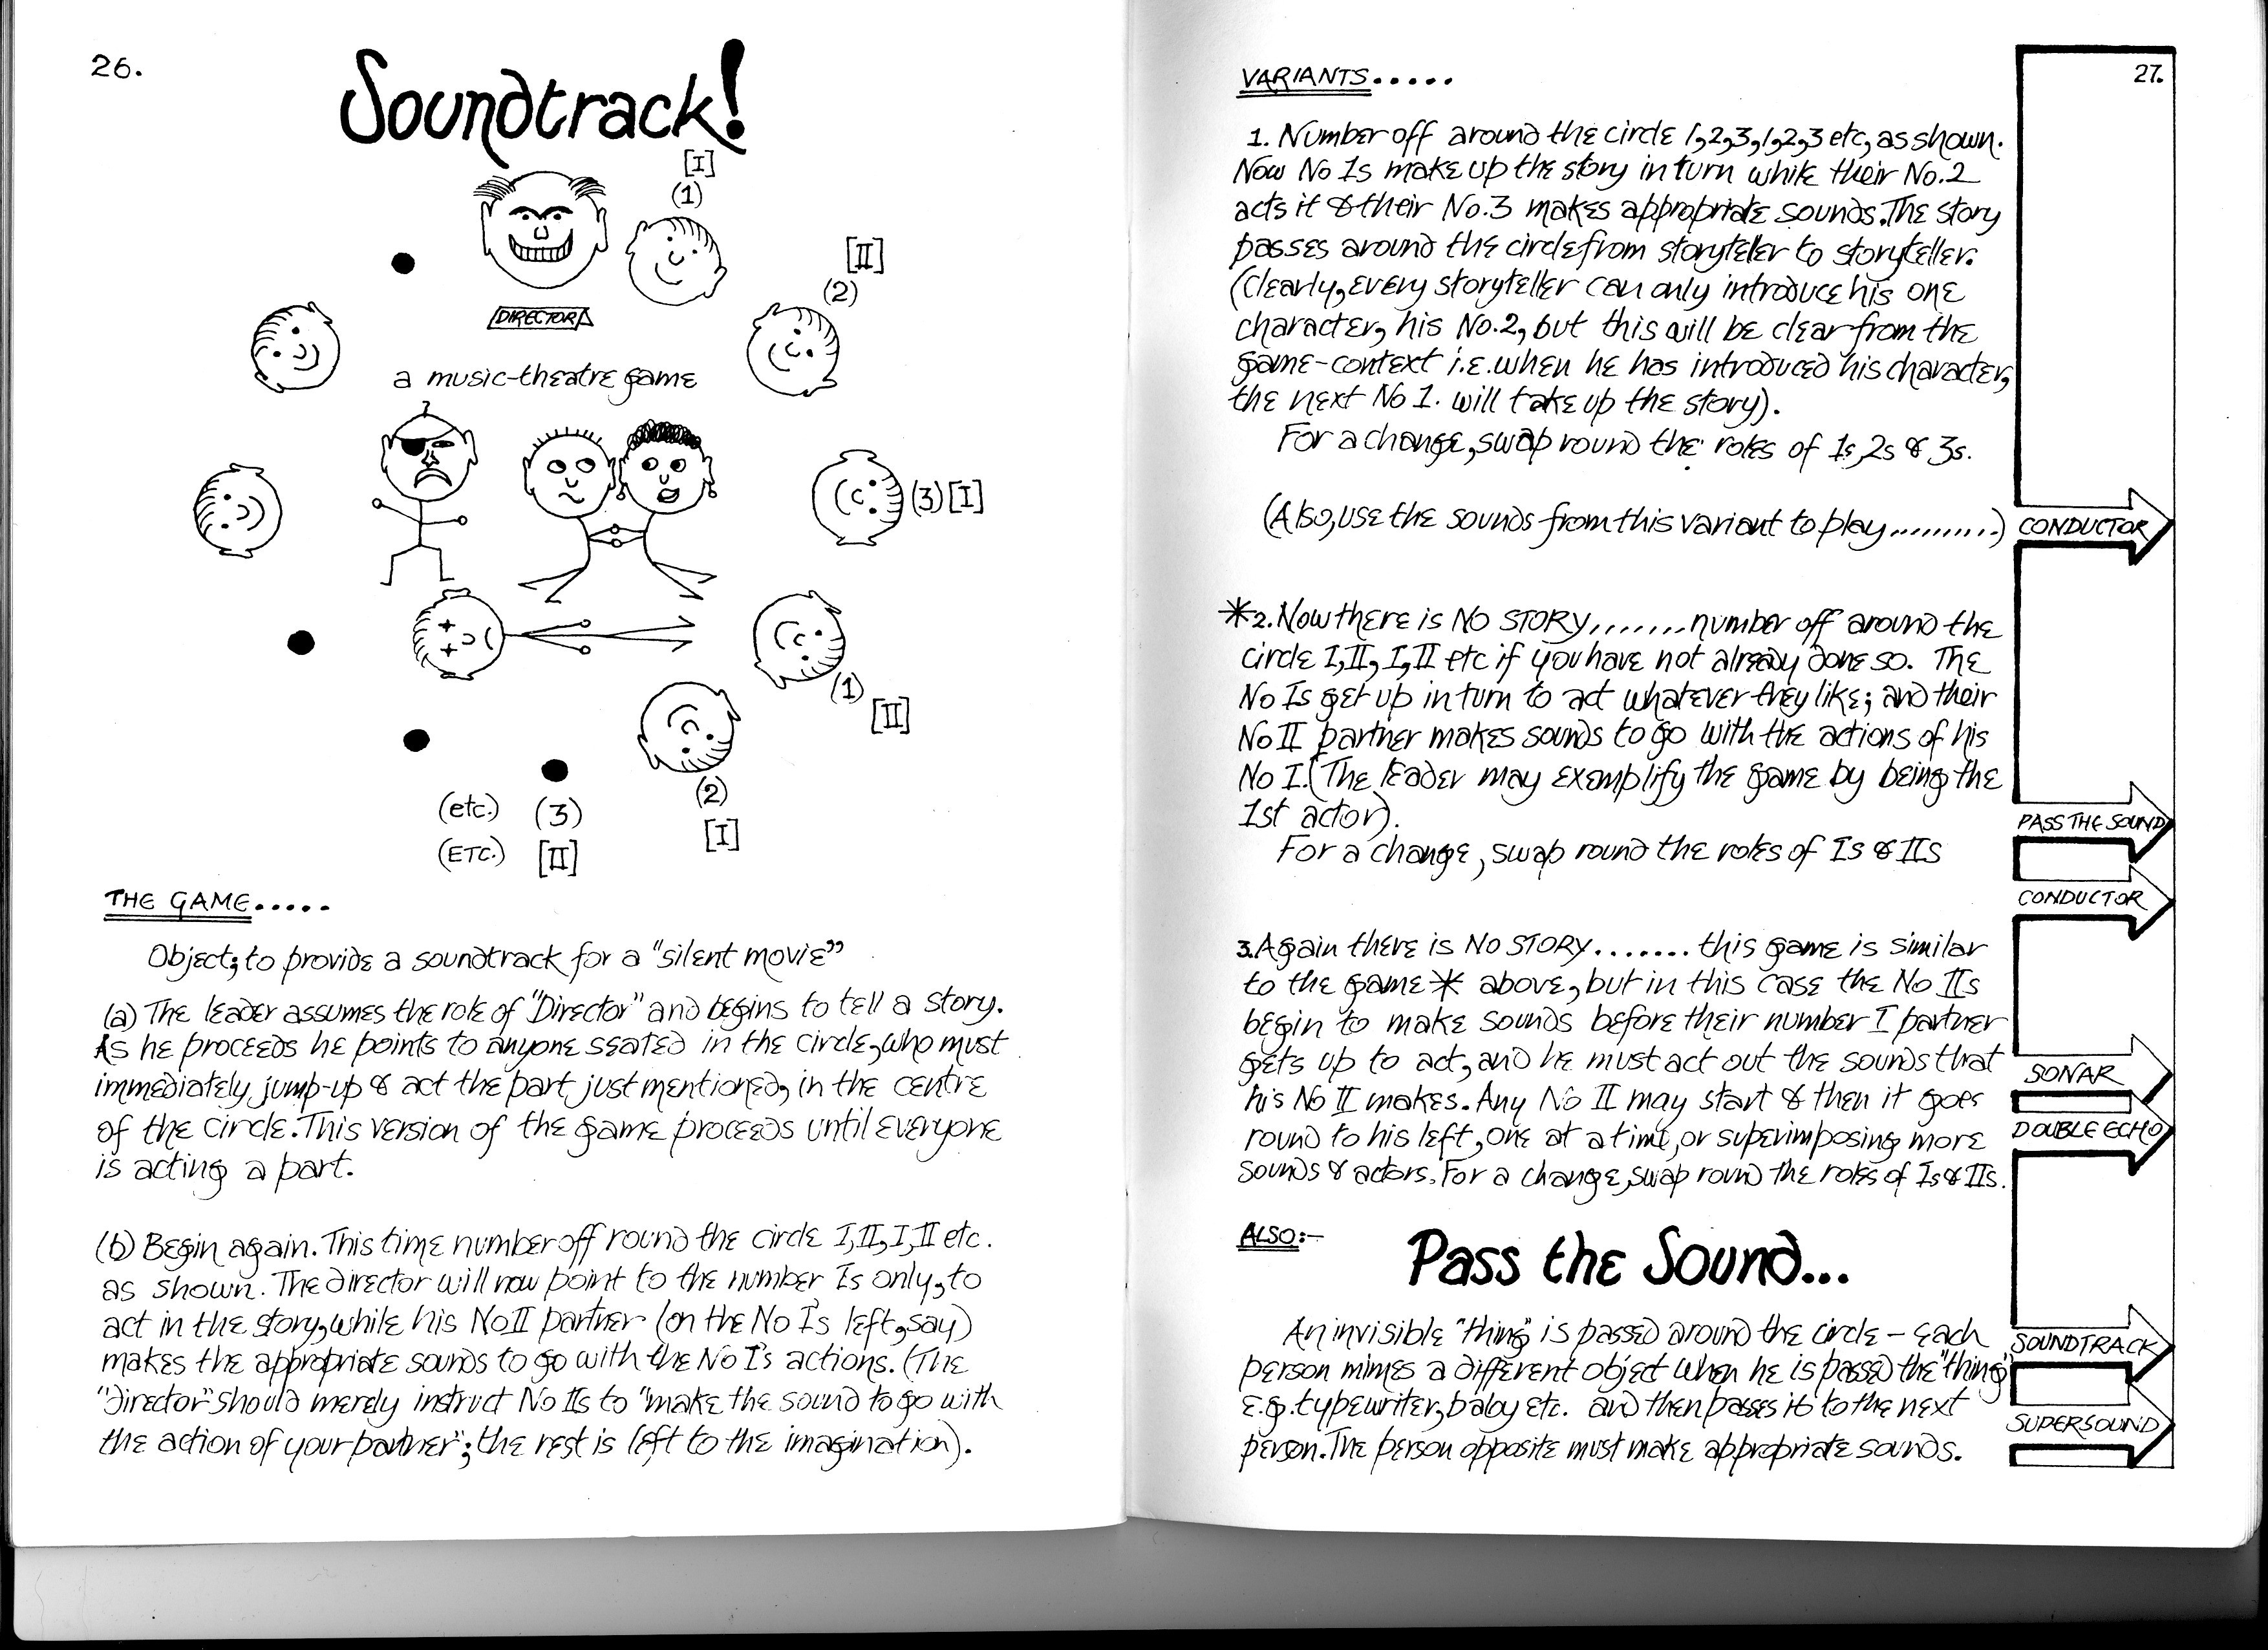 26.
Soundtrack!
[I]
(1)
[II]
(2)
DIRECTOR
a music-theatre game
(3) [I]
(1)
[II]
(2)
[I]
(etc.) (3)
(ETC.) [II]
THE GAME.....
Object; to provide a soundtrack for a "silent movie"
(a) The leader assumes the role of "Director" and begins to tell a story.
As he proceeds he points to anyone seated in the circle, who must
immediately jump-up & act the part just mentioned, in the centre
of the circle. This version of the game proceeds until everyone
is acting a part.
(b) Begin again. This time number off round the circle I, II, I, II etc.
as shown. The director will now point to the number Is only, to
act in the story, while his No II partner (on the No I's left, say)
makes the appropriate sounds to go with the No I's actions. (The
"director" should merely instruct No IIs to "make the sound to go with
the action of your partner"; the rest is left to the imagination).
27.
VARIANTS.....
1. Number off around the circle 1,2,3,1,2,3 etc, as shown.
Now No 1s make up the story in turn while their No.2
acts it & their No.3 makes appropriate sounds. The story
passes around the circle from storyteller to storyteller.
(clearly, every storyteller can only introduce his one
character, his No.2, but this will be clear from the
game-context i.e. when he has introduced his character,
the next No 1. will take up the story).
For a change, swap round the roles of 1s, 2s & 3s.
(Also, use the sounds from this variant to play..........) CONDUCTOR
*2. Now there is NO STORY.......number off around the
circle I, II, I, II etc if you have not already done so. The
No Is get up in turn to act whatever they like; and their
No II partner makes sounds to go with the actions of his
No I. (The leader may exemplify the game by being the
1st actor).
PASS THE SOUND
For a change, swap round the roles of Is & IIs
CONDUCTOR
3. Again there is NO STORY........ this game is similar
to the game * above, but in this case the No IIs
begin to make sounds before their number I partner
gets up to act, and he must act out the sounds that
SONAR
his No II makes. Any No II may start & then it goes
round to his left, one at a time, or superimposing more
DOUBLE ECHO
sounds & actors. For a change, swap round the roles of Is & IIs.
ALSO:-
Pass the Sound...
An invisible "thing" is passed around the circle - each
SOUNDTRACK
person mimes a different object when he is passed the "thing"
e.g. typewriter, baby etc. and then passes it to the next
SUPERSOUND
person. The person opposite must make appropriate sounds.